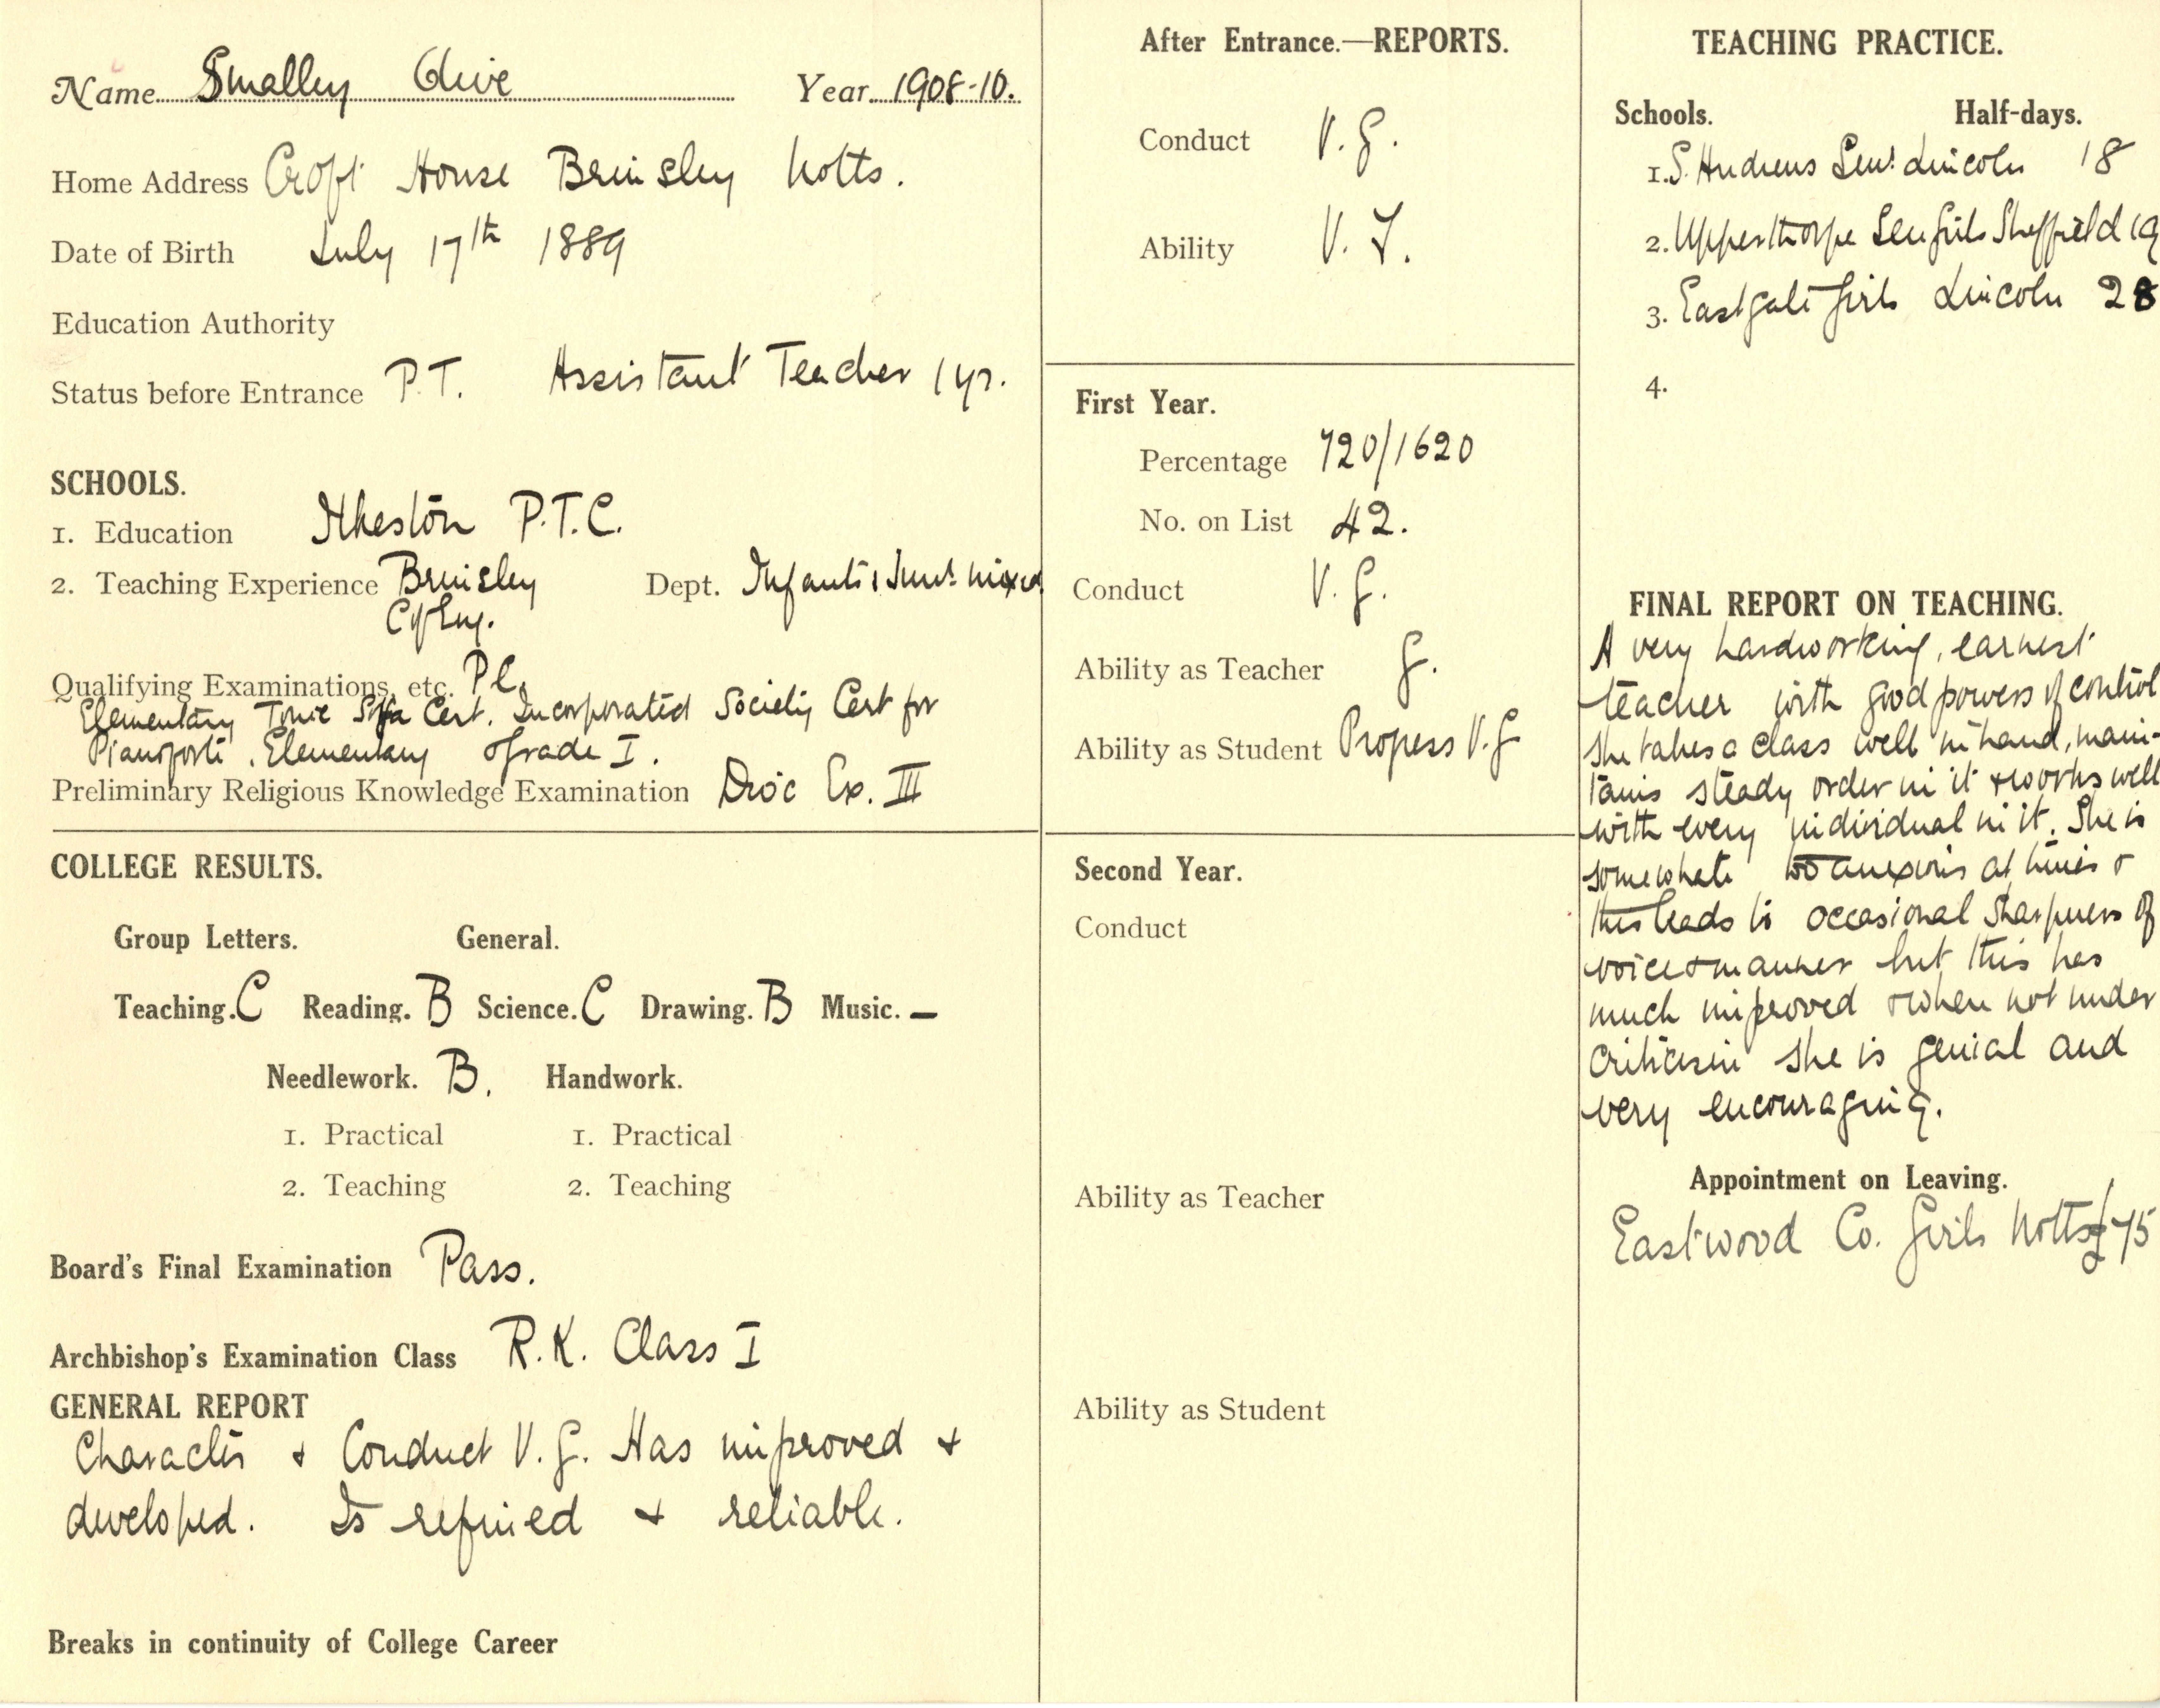 Name Smalley Olive Year 1908-10.
Home Address Croft House Brinsley Notts.
Date of Birth July 17th 1889
Education Authority
Status before Entrance P.T. Assistant Teacher 1 yr.
SCHOOLS.
1. Education Ilkeston P.T.C.
2. Teaching Experience Brinsley Dept. Infants & Junr. mixed
C of Eng.
Qualifying Examinations, etc. P.C.
Elementary Tonic Solfa Cert. Incorporated Society Cert for
Pianoforte. Elementary Grade I.
Preliminary Religious Knowledge Examination Dioc Ex. III
COLLEGE RESULTS.
Group Letters. General.
Teaching. C Reading. B Science. C Drawing. B Music. —
Needlework. B. Handwork.
1. Practical 1. Practical
2. Teaching 2. Teaching
Board's Final Examination Pass.
Archbishop's Examination Class R.K. Class I
GENERAL REPORT
Character & Conduct V.G. Has improved &
developed. Is refined & reliable.
Breaks in continuity of College Career
After Entrance.—REPORTS.
Conduct V.G.
Ability V.F.
First Year.
Percentage 720/1620
No. on List 42.
Conduct V.G.
Ability as Teacher G.
Ability as Student Progress V.G
Second Year.
Conduct
Ability as Teacher
Ability as Student
TEACHING PRACTICE.
Schools. Half-days.
1. S. Andrews Senr. Lincoln 18
2. Upperthorpe Sen Girls Sheffield 19
3. Eastgate Girls Lincoln 28
4.
FINAL REPORT ON TEACHING.
A very hardworking, earnest
teacher with good powers of control
She takes a class well in hand, main-
tains steady order in it & works well
with every individual in it. She is
somewhat too anxious at times &
this leads to occasional sharpness of
voice & manner but this has
much improved & when not under
criticism she is genial and
very encouraging.
Appointment on Leaving.
Eastwood Co. Girls Notts £75